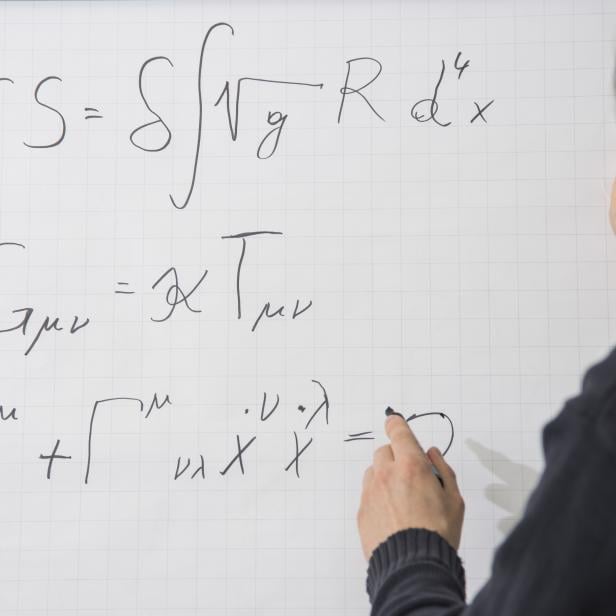 S = δ∫√g R d⁴x
G_μν = ϰ T_μν
μ + Γ^μ_νλ ẋ^ν ẋ^λ = 0